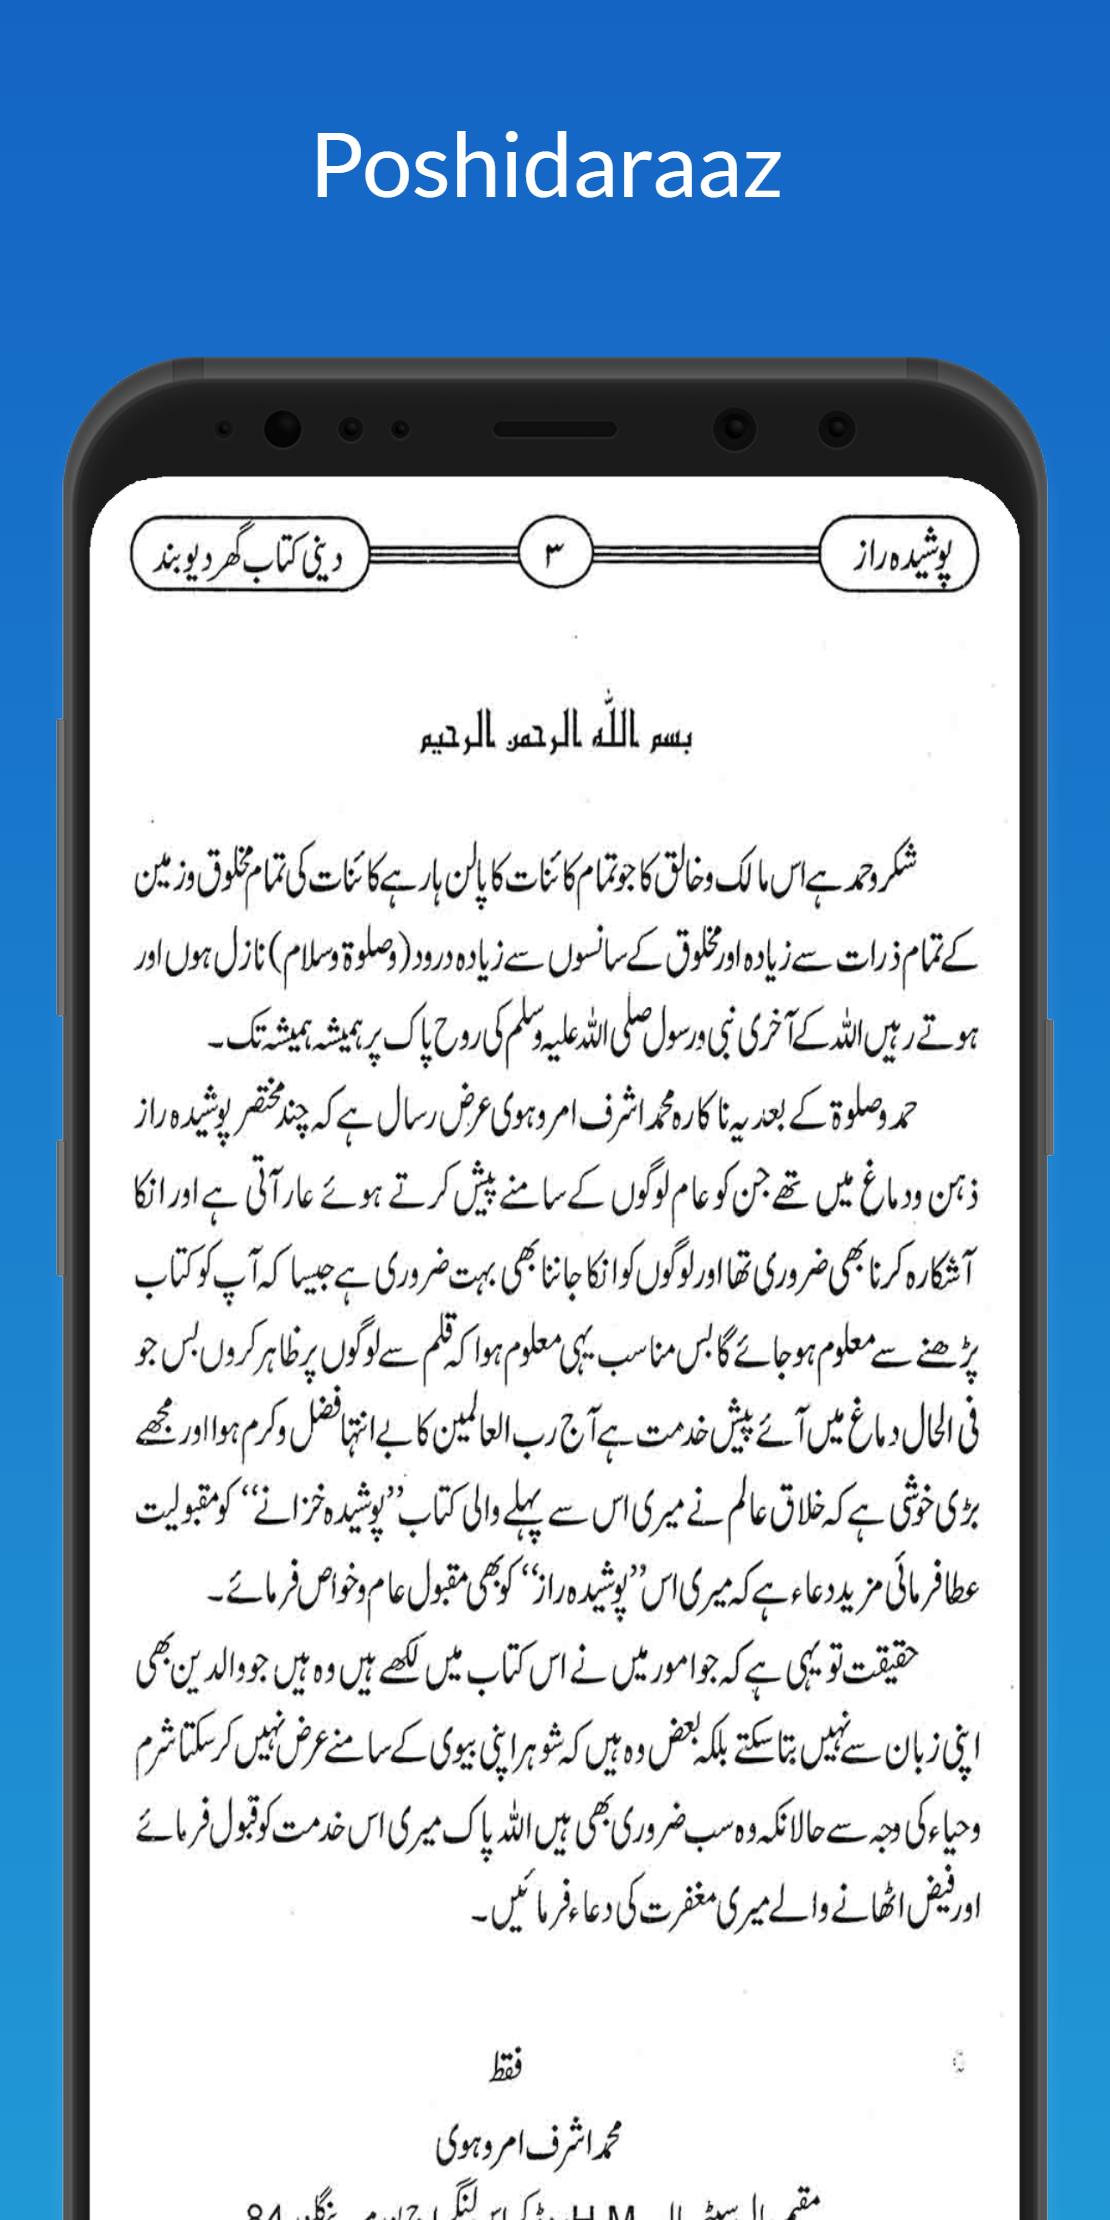 Poshidaraaz
پوشیدہ راز
۳
دینی کتاب گھر دیوبند
بسم اللہ الرحمن الرحیم
شکر وحمد ہے اس مالک وخالق کا جو تمام کائنات کا پالن ہار ہے کائنات کی تمام مخلوق وزمین
کے تمام ذرات سے زیادہ اور مخلوق کے سانسوں سے زیادہ درود (وصلوۃ وسلام) نازل ہوں اور
ہوتے رہیں اللہ کے آخری نبی ورسول صلی اللہ علیہ وسلم کی روح پاک پر ہمیشہ ہمیشہ تک۔
حمد وصلوۃ کے بعد یہ ناکارہ محمد اشرف امروہوی عرض رسال ہے کہ چند مختصر پوشیدہ راز
ذہن ودماغ میں تھے جن کو عام لوگوں کے سامنے پیش کرتے ہوئے عار آتی ہے اور انکا
آشکارہ کرنا بھی ضروری تھا اور لوگوں کو انکا جاننا بھی بہت ضروری ہے جیسا کہ آپ کو کتاب
پڑھنے سے معلوم ہو جائے گا بس مناسب یہی معلوم ہوا کہ قلم سے لوگوں پر ظاہر کروں بس جو
فی الحال دماغ میں آئے پیش خدمت ہے آج رب العالمین کا بے انتہا فضل وکرم ہوا اور مجھے
بڑی خوشی ہے کہ خلاق عالم نے میری اس سے پہلے والی کتاب ”پوشیدہ خزانے“ کو مقبولیت
عطا فرمائی مزید دعاء ہے کہ میری اس ”پوشیدہ راز“ کو بھی مقبول عام وخواص فرمائے۔
حقیقت تو یہی ہے کہ جو امور میں نے اس کتاب میں لکھے ہیں وہ ہیں جو والدین بھی
اپنی زبان سے نہیں بتا سکتے بلکہ بعض وہ ہیں کہ شوہر اپنی بیوی کے سامنے عرض نہیں کر سکتا شرم
وحیاء کی وجہ سے حالانکہ وہ سب ضروری بھی ہیں اللہ پاک میری اس خدمت کو قبول فرمائے
اور فیض اٹھانے والے میری مغفرت کی دعاء فرمائیں۔
فقط
محمد اشرف امروہوی
H.M 84